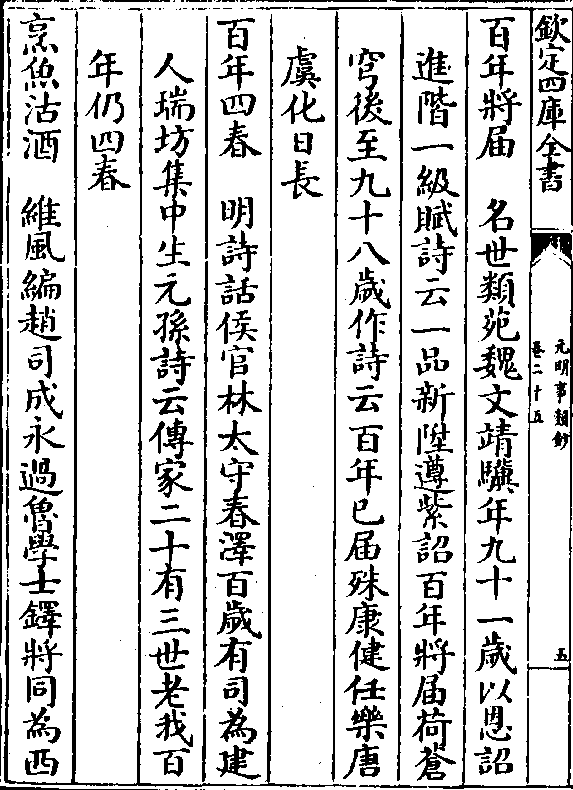 欽定四庫全書
元明事類鈔
卷二十五
五
百年將届　名世類苑魏文靖驥年九十一歲以恩詔
進階一級賦詩云一品新陞遵紫詔百年將届荷蒼
穹後至九十八歲作詩云百年已届殊康健任樂唐
虞化日長
百年四春　明詩話侯官林太守春澤百歲有司為建
人瑞坊集中生元孫詩云傳家二十有三世老我百
年仍四春
烹魚沽酒　維風編趙司成永過魯學士鐸將同為西